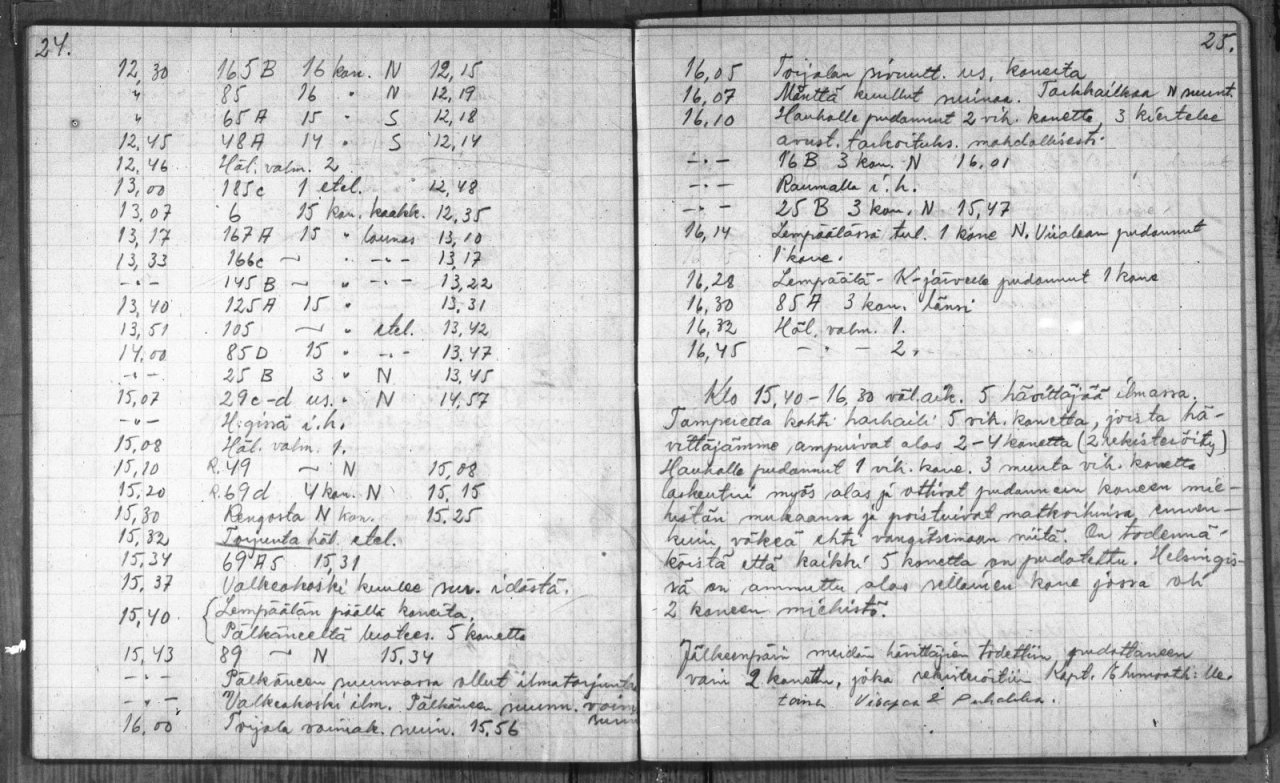 24.
12,30 165B 16 kon. N 12,15
" 85 16 " N 12,19
" 65A 15 " S 12,18
12,45 48A 14 " S 12,14
12,46 Häl. valm. 2
13,00 185c 1 etel. 12,48
13,07 6 15 kon. kaakk. 12,35
13,17 167A 15 " lounas 13,10
13,33 166c ~ " -"- 13,17
-"- 145B ~ " -"- 13,22
13,40 125A 15 " 13,31
13,51 105 ~ " etel. 13,42
14,00 85D 15 " -"- 13,47
-"- 25B 3 " N 13,45
15,07 29c-d us. " N 14,57
-"- H:gissä i.h.
15,08 Häl. valm. 1.
15,10 R.49 ~ N 15,08
15,20 R.69d 4 kon. N 15,15
15,30 Rengosta N kon. 15.25
15,32 Torjunta häl. etel.
15,34 69A5 15,31
15,37 Valkeakoski kuulee sur. idästä.
15,40 Lempäälän päällä koneita,
Pälkäneeltä luotees. 5 konetta
15,43 89 ~ N 15,34
-"- Pälkäneen suunnassa ollut ilmatorjunta
-"- Valkeakoski ilm. Pälkäneen suunn. voim
surin
16,00 Toijala voimak. surin. 15,56
25.
16,05 Toijalan sivuutt. us. koneita
16,07 Mänttä kuullut surinaa. Tarkkailkaa N suunt.
16,10 Hauholle pudonnut 2 vih. konetta, 3 kiertelee
avust. tarkoituks. mahdollisesti.
-"- 16B 3 kon. N 16.01
-"- Raumalla i.h.
-"- 25B 3 kon. N 15,47
16,14 Lempäälässä tul. 1 kone N. Viialaan pudonnut
1 kone.
16,28 Lempäälä - K-järvelle pudonnut 1 kone
16,30 85A 3 kon. länsi
16,32 Häl. valm. 1.
16,45 - " - 2.
Klo 15,40 - 16,30 väl.aik. 5 hävittäjää ilmassa.
Tamperetta kohti harhaili 5 vih. konetta, joista hä-
vittäjämme ampuivat alas 2-4 konetta (2 rekisteröity)
Hauholle pudonnut 1 vih. kone. 3 muuta vih. konetta
laskeutui myös alas ja ottivat pudonneen koneen mie-
histön mukaansa ja poistuivat matkoihinsa ennen-
kuin väkeä ehti vangitsemaan niitä. On todennä-
köistä että kaikki 5 konetta on pudotettu. Helsingis-
sä on ammuttu alas sellainen kone jossa oli
2 koneen miehistö.
Jälkeenpäin meidän hävittäjien todettiin pudottaneen
vain 2 konetta, joka rekisteröitiin Kapt. Ehrnrooth:lle
Visapää & Puhakka.